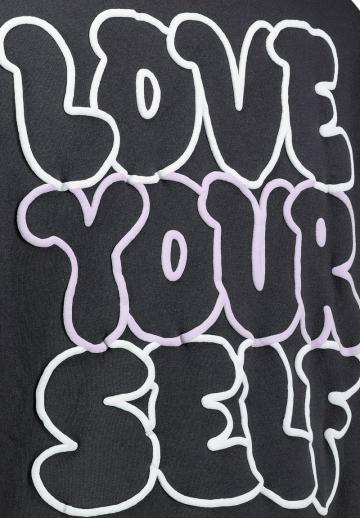 LOVE
YOUR
SELF